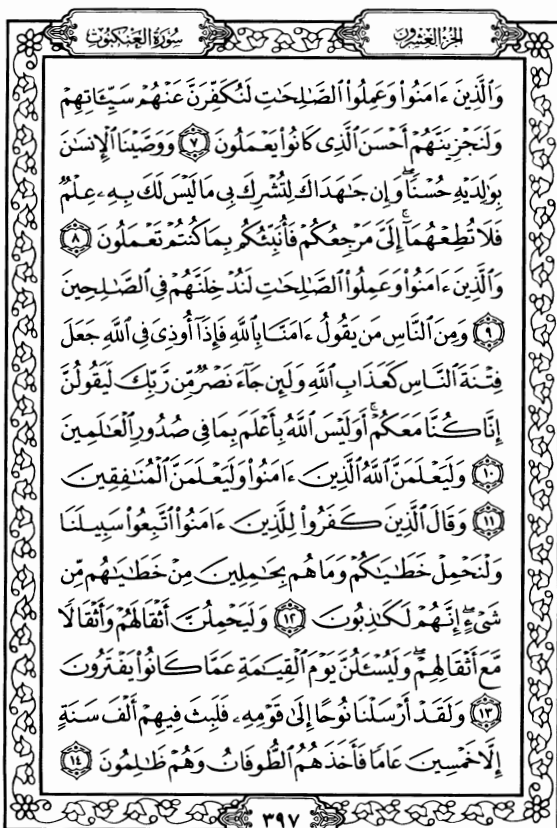 الجزء العشرون
سورة العنكبوت
وَٱلَّذِينَ ءَامَنُوا۟ وَعَمِلُوا۟ ٱلصَّـٰلِحَـٰتِ لَنُكَفِّرَنَّ عَنْهُمْ سَيِّـَٔاتِهِمْ
وَلَنَجْزِيَنَّهُمْ أَحْسَنَ ٱلَّذِى كَانُوا۟ يَعْمَلُونَ ٧ وَوَصَّيْنَا ٱلْإِنسَـٰنَ
بِوَٰلِدَيْهِ حُسْنًا ۖ وَإِن جَـٰهَدَاكَ لِتُشْرِكَ بِى مَا لَيْسَ لَكَ بِهِۦ عِلْمٌ
فَلَا تُطِعْهُمَآ ۚ إِلَىَّ مَرْجِعُكُمْ فَأُنَبِّئُكُم بِمَا كُنتُمْ تَعْمَلُونَ ٨
وَٱلَّذِينَ ءَامَنُوا۟ وَعَمِلُوا۟ ٱلصَّـٰلِحَـٰتِ لَنُدْخِلَنَّهُمْ فِى ٱلصَّـٰلِحِينَ
٩ وَمِنَ ٱلنَّاسِ مَن يَقُولُ ءَامَنَّا بِٱللَّهِ فَإِذَآ أُوذِىَ فِى ٱللَّهِ جَعَلَ
فِتْنَةَ ٱلنَّاسِ كَعَذَابِ ٱللَّهِ وَلَئِن جَآءَ نَصْرٌ مِّن رَّبِّكَ لَيَقُولُنَّ
إِنَّا كُنَّا مَعَكُمْ ۚ أَوَلَيْسَ ٱللَّهُ بِأَعْلَمَ بِمَا فِى صُدُورِ ٱلْعَـٰلَمِينَ
١٠ وَلَيَعْلَمَنَّ ٱللَّهُ ٱلَّذِينَ ءَامَنُوا۟ وَلَيَعْلَمَنَّ ٱلْمُنَـٰفِقِينَ
١١ وَقَالَ ٱلَّذِينَ كَفَرُوا۟ لِلَّذِينَ ءَامَنُوا۟ ٱتَّبِعُوا۟ سَبِيلَنَا
وَلْنَحْمِلْ خَطَـٰيَـٰكُمْ وَمَا هُم بِحَـٰمِلِينَ مِنْ خَطَـٰيَـٰهُم مِّن
شَىْءٍ ۖ إِنَّهُمْ لَكَـٰذِبُونَ ١٢ وَلَيَحْمِلُنَّ أَثْقَالَهُمْ وَأَثْقَالًا
مَّعَ أَثْقَالِهِمْ ۖ وَلَيُسْـَٔلُنَّ يَوْمَ ٱلْقِيَـٰمَةِ عَمَّا كَانُوا۟ يَفْتَرُونَ
١٣ وَلَقَدْ أَرْسَلْنَا نُوحًا إِلَىٰ قَوْمِهِۦ فَلَبِثَ فِيهِمْ أَلْفَ سَنَةٍ
إِلَّا خَمْسِينَ عَامًا فَأَخَذَهُمُ ٱلطُّوفَانُ وَهُمْ ظَـٰلِمُونَ ١٤
٣٩٧